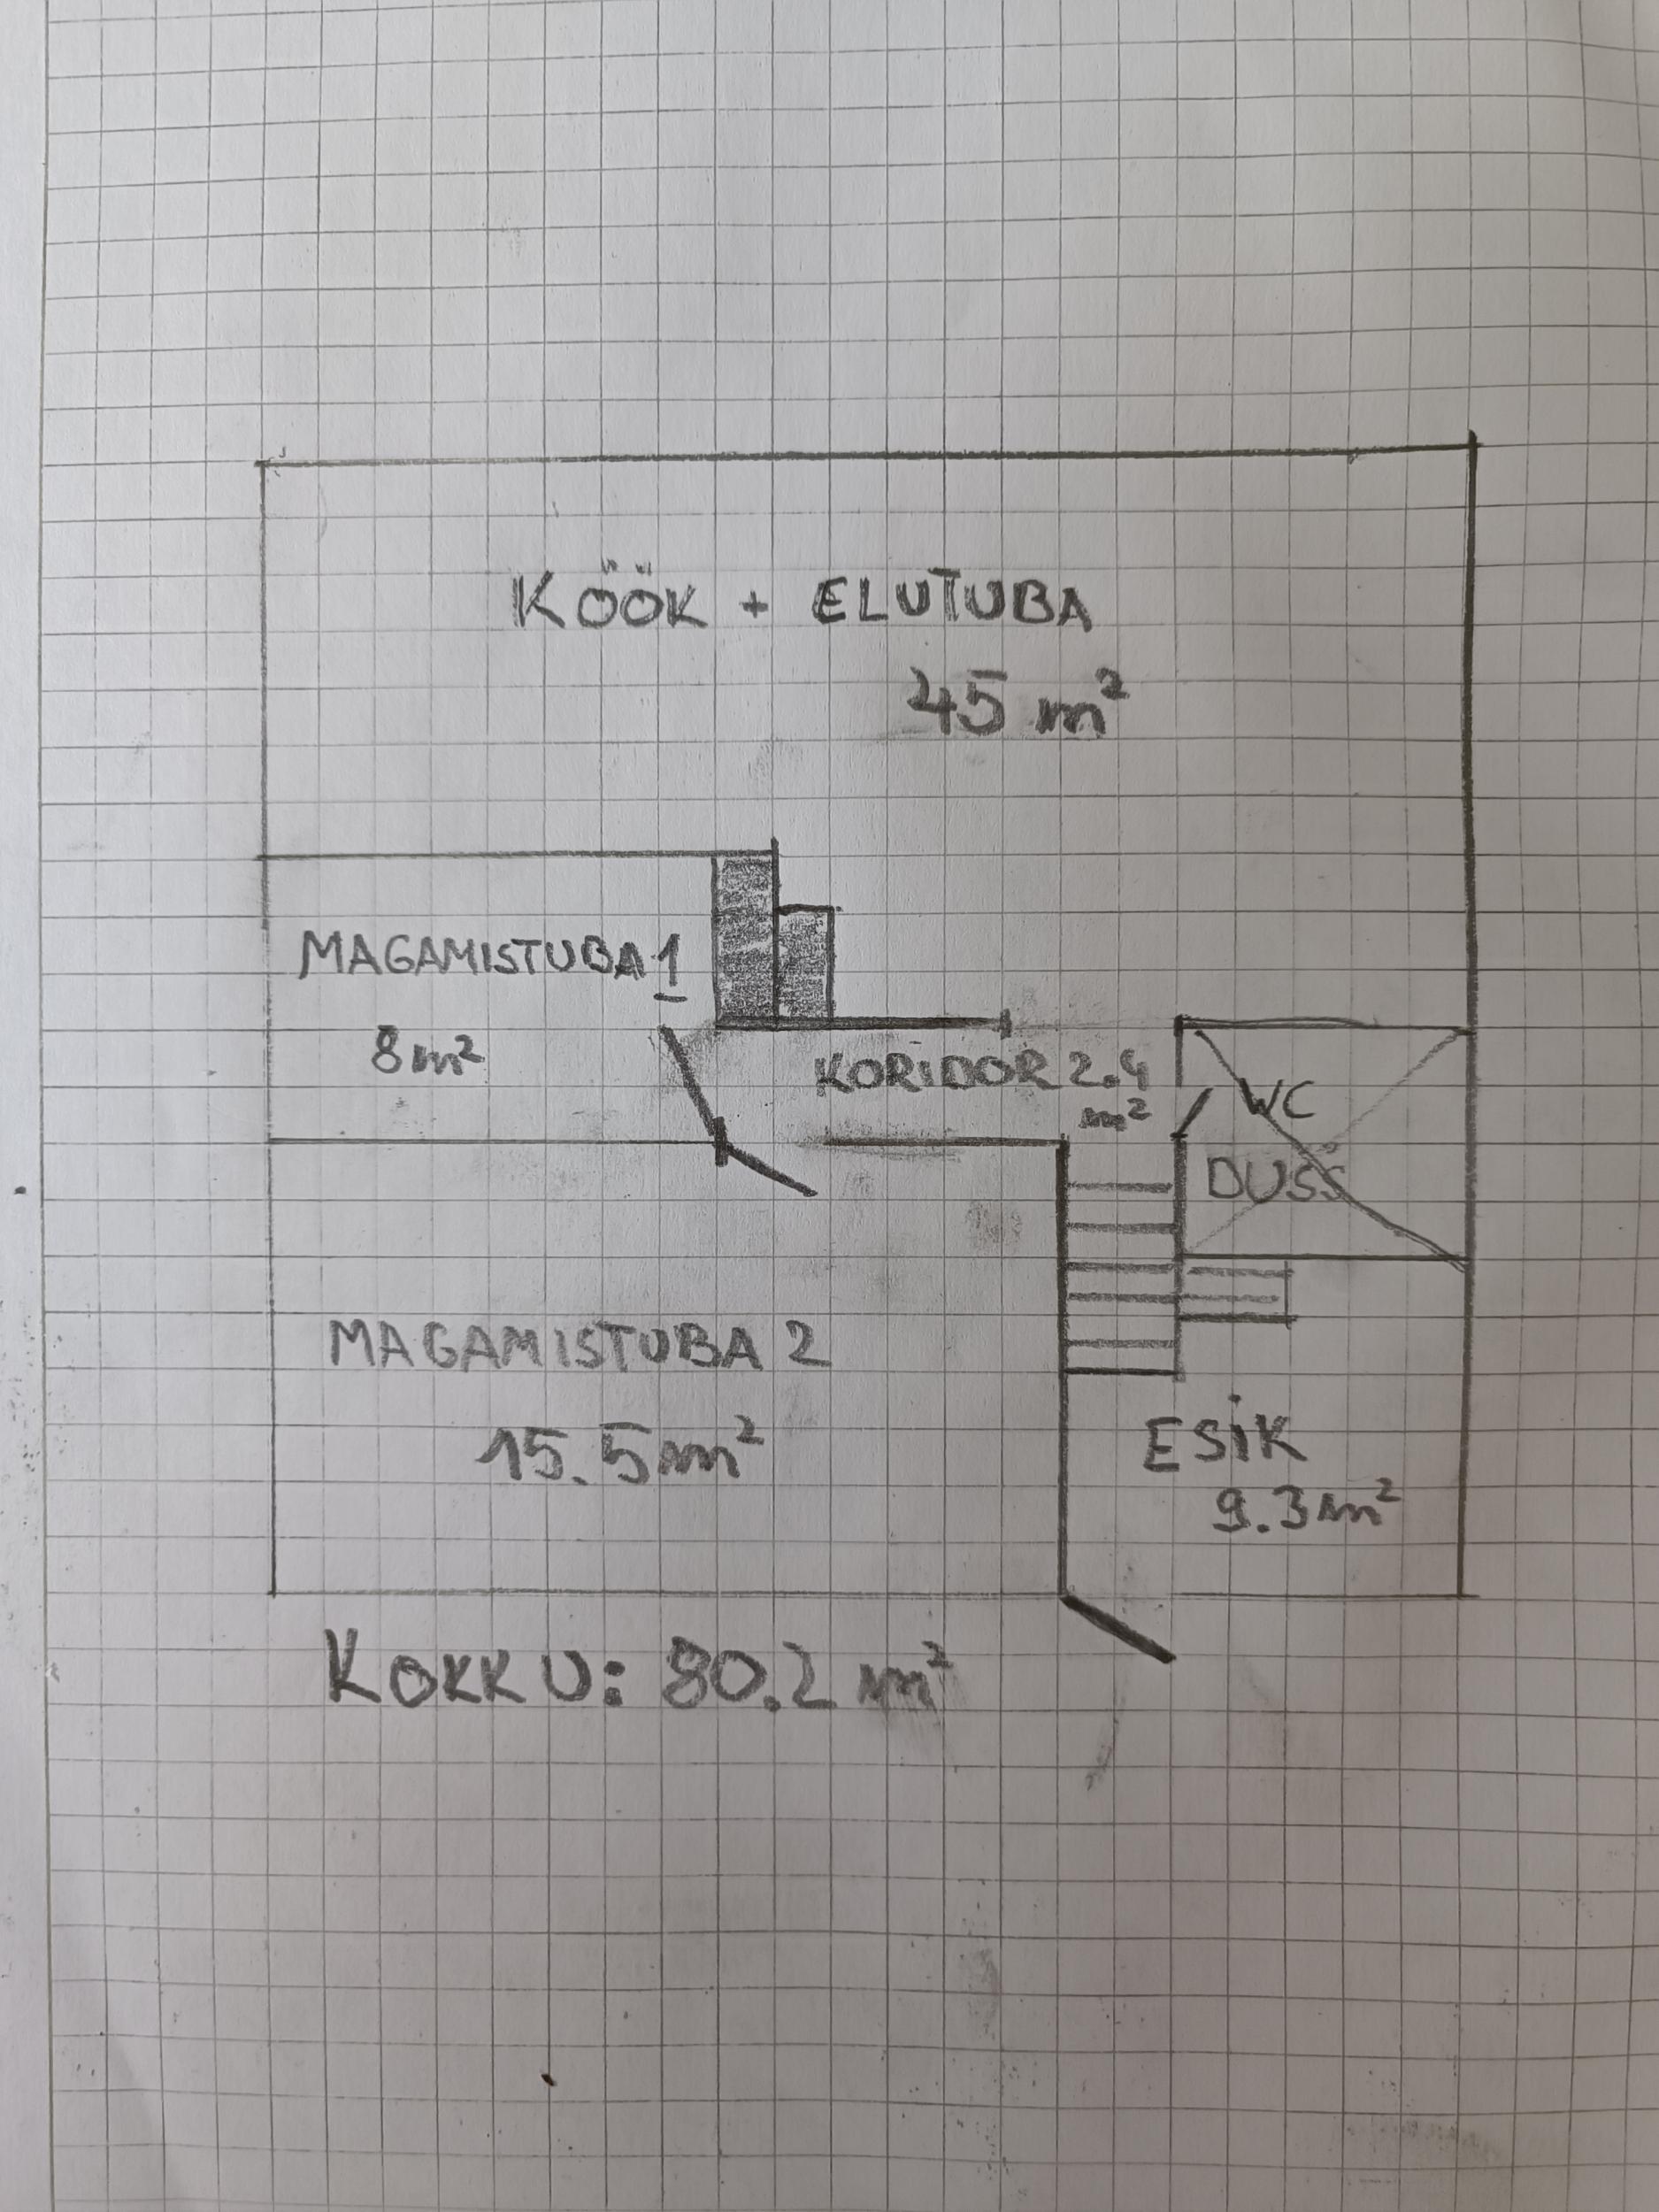 KÖÖK + ELUTUBA
45 m²
MAGAMISTUBA 1
8m²
KORIDOR 2.4
m²
WC
DUŠŠ
MAGAMISTUBA 2
15.5m²
ESIK
9.3m²
KOKKU: 80.2 m²